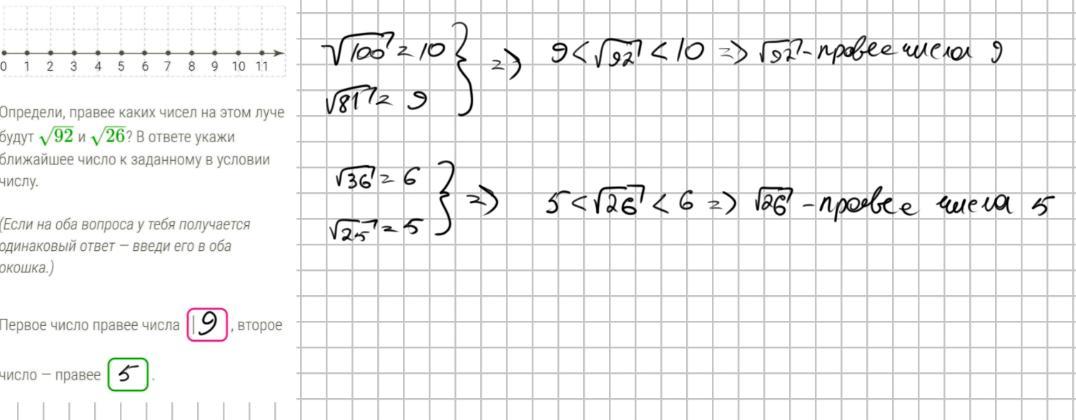 0 1 2 3 4 5 6 7 8 9 10 11
Определи, правее каких чисел на этом луче
будут √92 и √26? В ответе укажи
ближайшее число к заданному в условии
числу.
(Если на оба вопроса у тебя получается
одинаковый ответ — введи его в оба
окошка.)
Первое число правее числа 9, второе
число — правее 5.
√100 = 10
√81 = 9
} => 9 < √92 < 10 => √92 - правее числа 9
√36 = 6
√25 = 5
} => 5 < √26 < 6 => √26 - правее числа 5